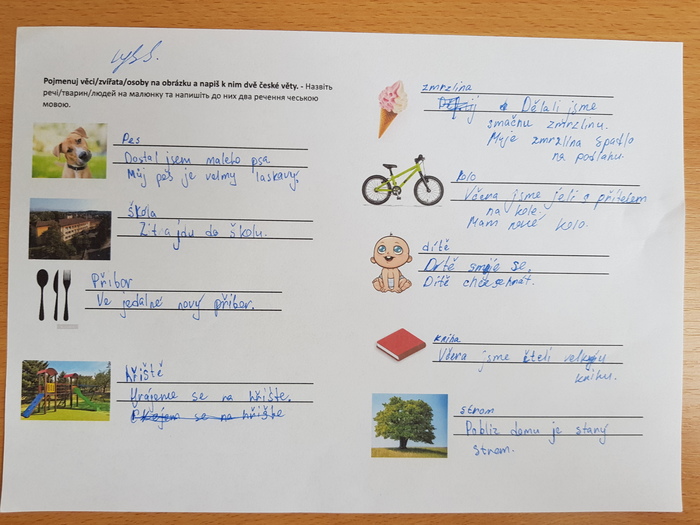 Pojmenuj věci/zvířata/osoby na obrázku a napiš k nim dvě české věty. - Назвіть
речі/тварин/людей на малюнку та напишіть до них два речення чеською
мовою.
Pes
Dostal jsem malého psa
Můj pes je velmy laskavý.
škola
Zitra jdu do školu.
Příbor
Ve jedalné nový příbor.
hřiště
Hrajeme se na hřište.
se na hřiště
zmrzlina
Dělali jsme
smačnu zmrzlinu.
Moje zmrzlina spadlo
na podlahu.
kolo
Včera jsme jeli s přítelem
na kole.
Mam nové kolo.
dítě
Dítě směje se.
Dítě chče hrát.
kniha
Včera jsme četli velkyu
knihu.
strom
Pobliz domu je starý
strom.